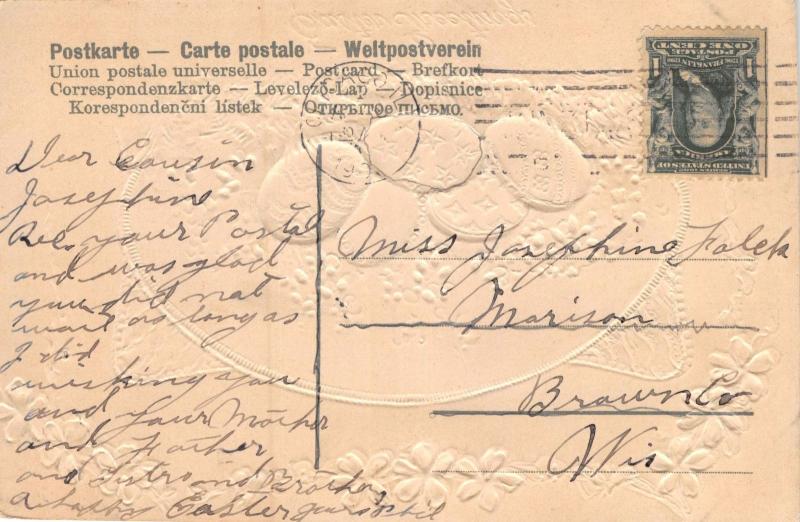 Postkarte — Carte postale — Weltpostverein
Union postale universelle — Postcard — Brefkort
Correspondenzkarte — Levelező-Lap — Dopisnice
Korespondenční lístek — Открытое письмо.
ONE CENT
POSTAGE
1 1
FRANKLIN
AMERICA
UNITED STATES OF
Dear Cousin
Josephine
Rec. your Postal
and was glad
you did not
wait as long as
I did
wishing you
and your Mother
and Father
and Sistrs and Brothers
a happy Easter
Miss Josephine Falck
Morison
Brown Co
Wis